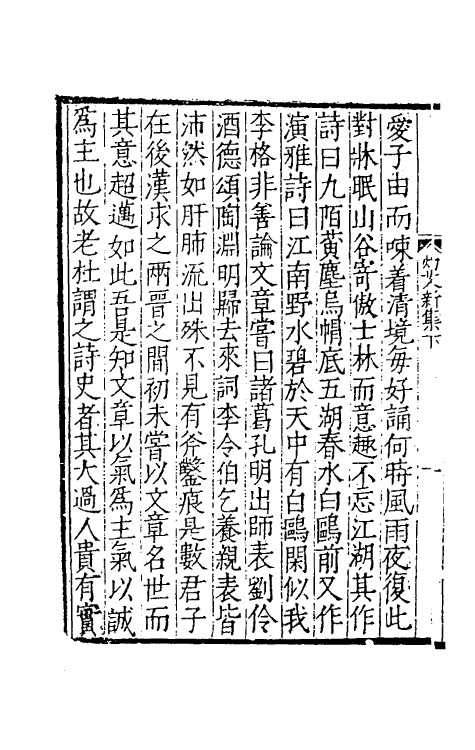 愛子由而㖨着清境每好誦何時風雨夜復此
對牀眠山谷寄傲士林而意趣不忘江湖其作
詩曰九陌黃塵烏帽底五湖春水白鷗前又作
演雅詩曰江南野水碧於天中有白鷗閑似我
李格非善論文章嘗曰諸葛孔明出師表劉伶
酒德頌陶淵明歸去來詞李令伯乞養親表皆
沛然如肝肺流出殊不見有斧鑿痕是數君子
在後漢末之兩晉之間初未嘗以文章名世而
其意超邁如此吾是知文章以氣爲主氣以誠
爲主也故老杜謂之詩史者其大過人貴有實
新集下
一